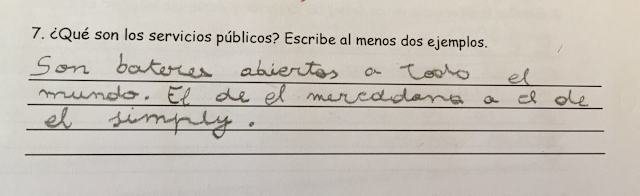 7. ¿Qué son los servicios públicos? Escribe al menos dos ejemplos.
Son bateres abiertos a todo el
mundo. El de el mercadona a el de
el simply.